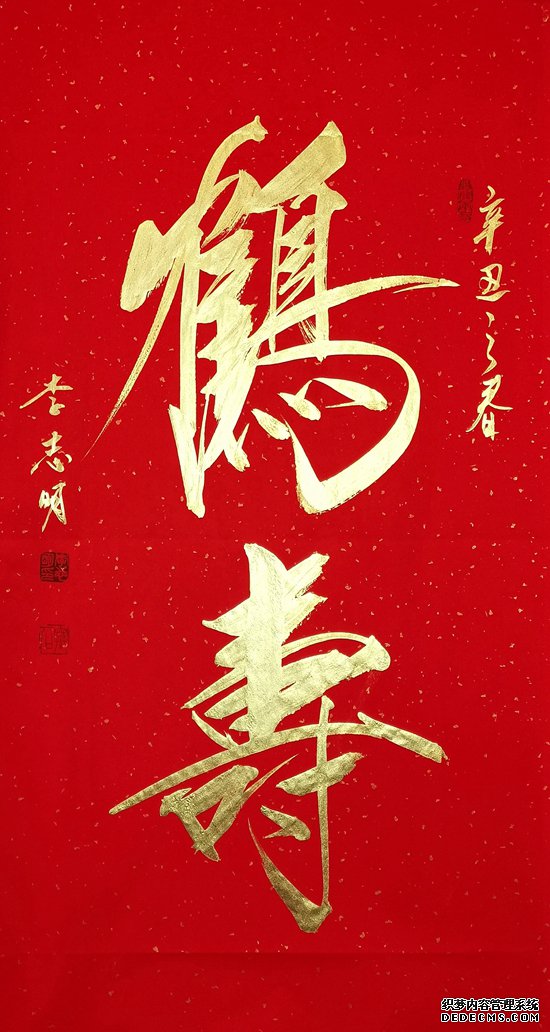 辛丑之春
鶴壽
李志明
织梦内容管理系统
DEDECMS.COM